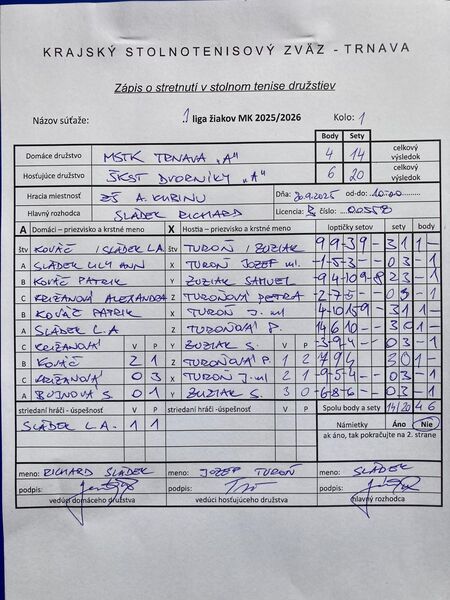 KRAJSKÝ STOLNOTENISOVÝ ZVÄZ - TRNAVA
Zápis o stretnutí v stolnom tenise družstiev
Názov súťaže: 1 liga žiakov MK 2025/2026 Kolo: 1
Body Sety
Domáce družstvo MSTK TRNAVA „A" 4 14 celkový výsledok
Hosťujúce družstvo ŠKST DVORNÍKY „A" 6 20 celkový výsledok
Hracia miestnosť ZŠ A. KUBINU Dňa: 30.9.2025 od-do: 10:00
Hlavný rozhodca SLÁDEK RICHARD Licencia: B číslo: 00558
A Domáci - priezvisko a krstné meno X Hostia – priezvisko a krstné meno loptičky setov sety body
štv KOVÁČ / SLÁDEK L.A. štv TUROŇ / BUZIAK 9 9 -3 9 - 3 1 1 -
A SLÁDEK LILY ANN X TUROŇ JOZEF ml. -1 -5 -3 - - 0 3 - 1
B KOVÁČ PATRIK Y BUZIAK SAMUEL -9 4 -10 9 -8 2 3 - 1
C KRIŽANOVÁ ALEXANDRA Z TUROŇOVÁ PETRA -2 -7 -5 - - 0 3 - 1
B KOVÁČ PATRIK X TUROŇ J. ml 3 1 1 -
A SLÁDEK L.A Z TUROŇOVÁ P. 3 0 1 -
C KRIŽANOVÁ V P Y BUZIAK S. V P -3 -9 -4 - - 0 3 - 1
B KOVÁČ 2 1 Z TUROŇOVÁ P. 1 2 7 9 4 2 0 1 -
C KRIŽANOVÁ 0 3 X TUROŇ J. ml 2 1 -9 -5 -4 - - 0 3 - 1
A BUJNOVÁ S. 0 1 Y BUZIAK S. 3 0 -6 -8 -6 - - 0 3 - 1
striedaní hráči - úspešnosť V P striedaní hráči -úspešnosť V P Spolu body a sety 14 20 4 6
SLÁDEK L.A. 1 1 Námietky Áno Nie
ak áno, tak pokračujte na 2. strane
meno: RICHARD SLÁDEK meno: JOZEF TUROŇ meno: SLÁDEK
podpis: podpis: podpis:
vedúci domáceho družstva vedúci hosťujúceho družstva hlavný rozhodca